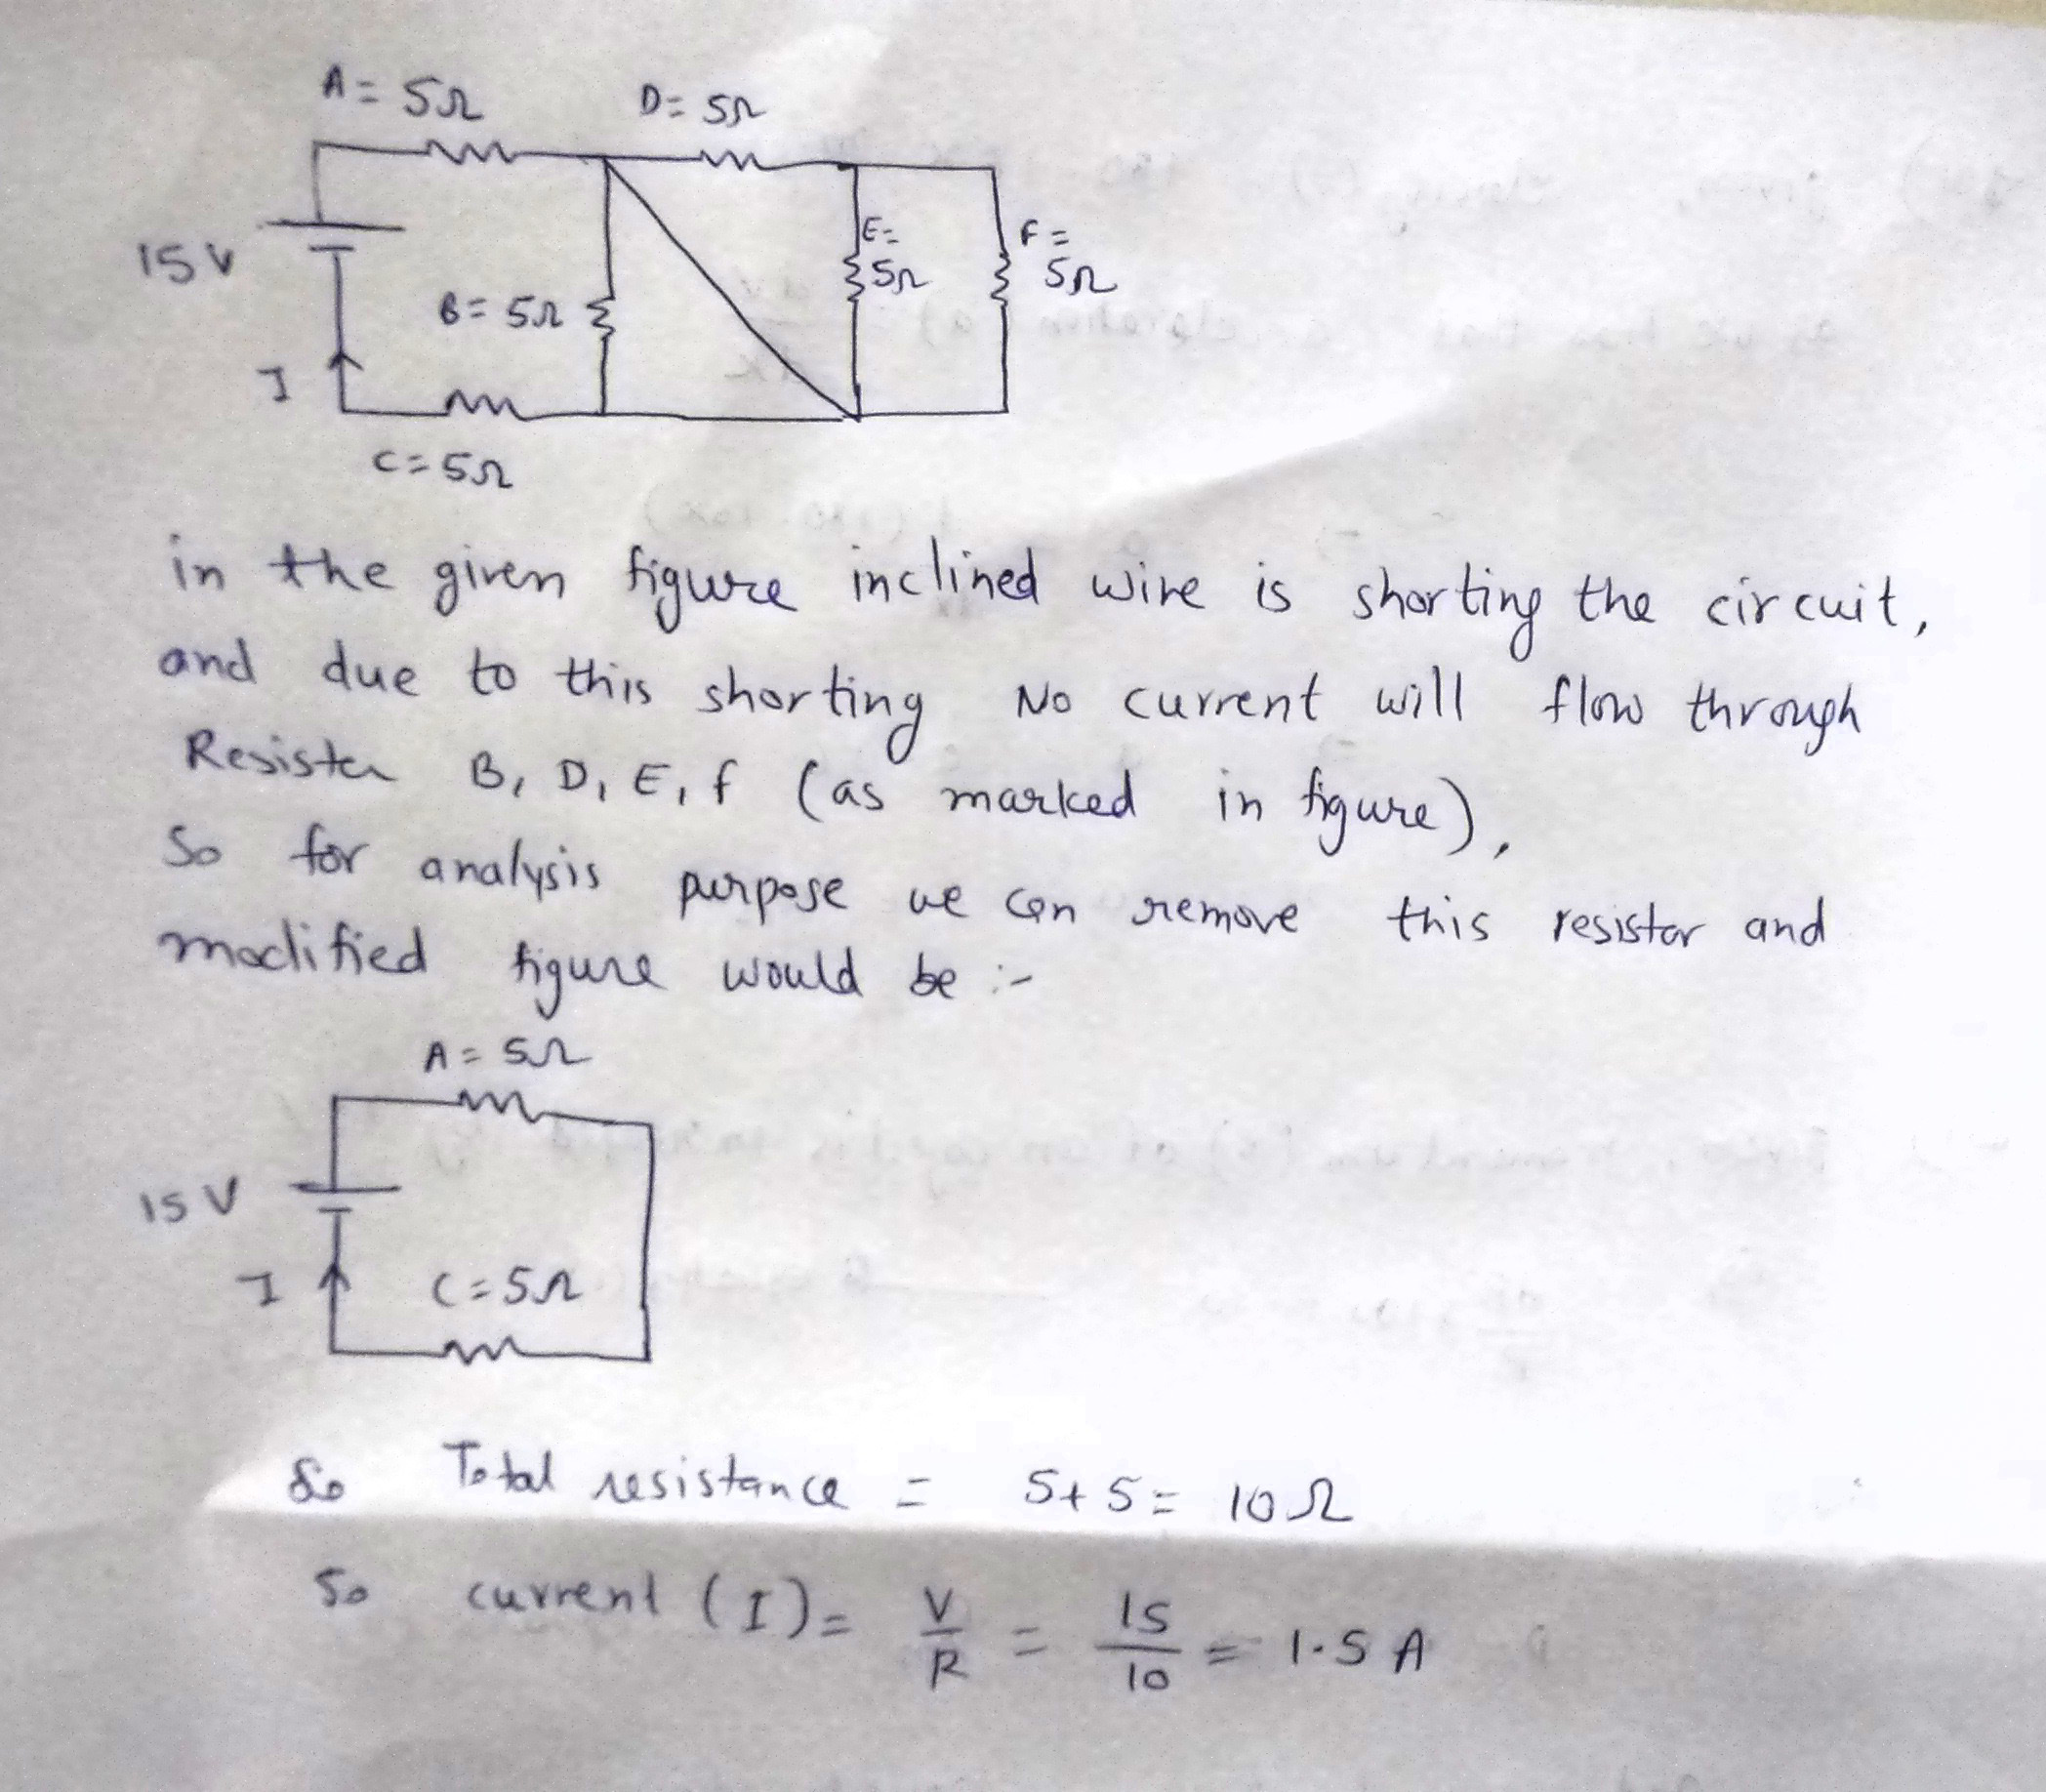 A = 5Ω D = 5Ω
15 V
B = 5Ω
E = 5Ω
F = 5Ω
I
C = 5Ω
in the given figure inclined wire is shorting the circuit,
and due to this shorting No current will flow through
Resister B, D, E, f (as marked in figure),
So for analysis purpose we can remove this resistor and
modified figure would be :-
A = 5Ω
15 V
I
C = 5Ω
So Total resistance = 5+5 = 10Ω
So current (I) = V/R = 15/10 = 1.5 A